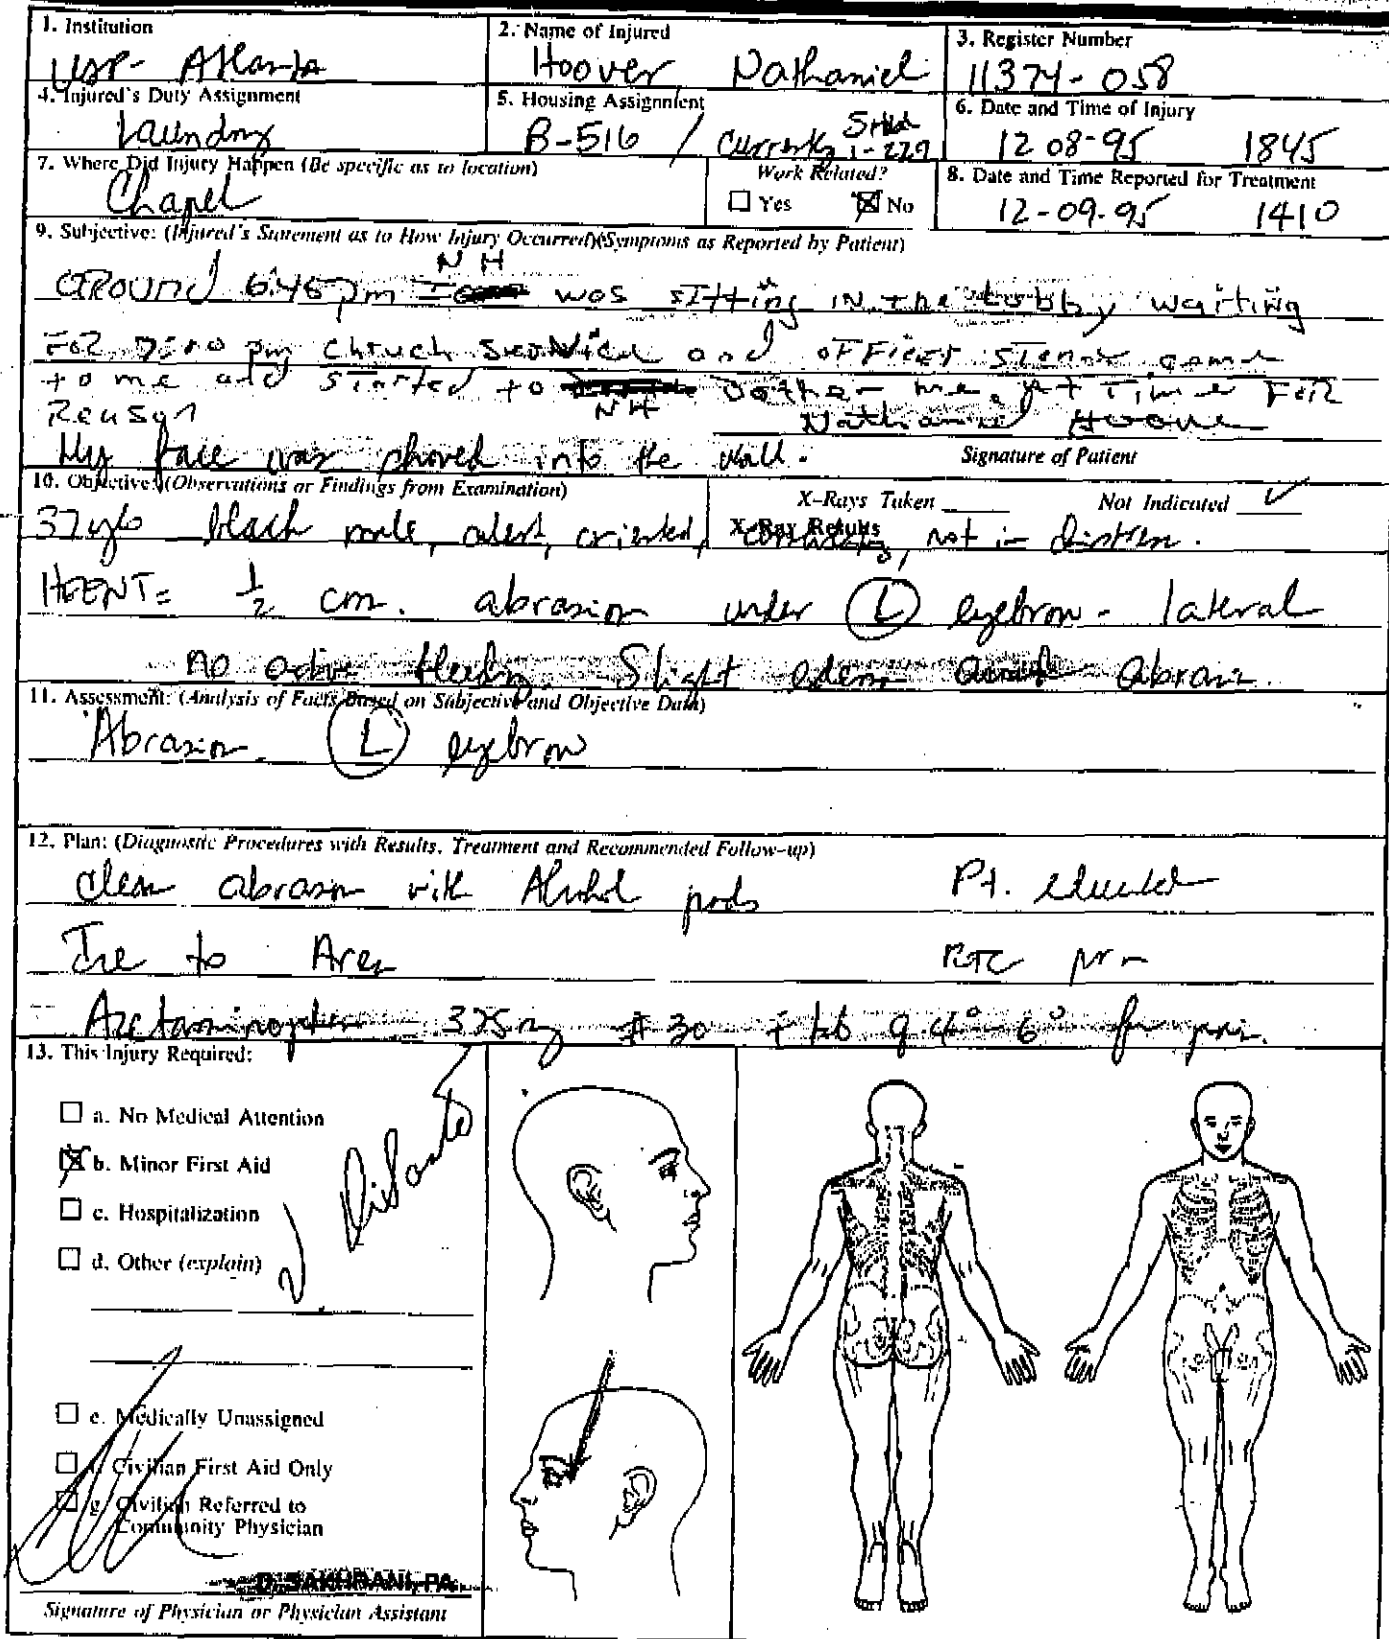 1. Institution
USP- Atlanta
2. Name of Injured
Hoover Nathaniel
3. Register Number
11374-058
4. Injured's Duty Assignment
Laundry
5. Housing Assignment
B-516 / Currently 1-229
6. Date and Time of Injury
12 08-95 1845
7. Where Did Injury Happen (Be specific as to location)
Chapel
Work Related?
Yes No
8. Date and Time Reported for Treatment
12-09-95 1410
9. Subjective: (Injured's Statement as to How Injury Occurred)(Symptoms as Reported by Patient)
N H
AROUND 6:45 pm was sitting IN the Lobby waiting
FOR pm chruch and OFFicer came
to me and started to bother me, Time FOR
Reason N H Nathaniel Hoover
My face was shoved into the wall. Signature of Patient
10. Objective: (Observations or Findings from Examination)
X-Rays Taken Not Indicated ✓
X-Ray Results
37 y/o black male, alert, oriented, not in distress.
HEENT= 1/2 cm. abrasion under (L) eyebrow - lateral
no active bleeding. Slight edema abrasion.
11. Assessment: (Analysis of Facts Based on Subjective and Objective Data)
Abrasion. (L) eyebrow
12. Plan: (Diagnostic Procedures with Results, Treatment and Recommended Follow-up)
Clean abrasion with Alcohol pads Pt. educated
Ice to Area RTC prn
Acetaminophen 325mg # 30 + tab q 4° 6° for pain.
13. This Injury Required:
a. No Medical Attention
b. Minor First Aid
c. Hospitalization
d. Other (explain)
e. Medically Unassigned
f. Civilian First Aid Only
g. Civilian Referred to
Community Physician
D. SAKHRANI, PA
Signature of Physician or Physician Assistant